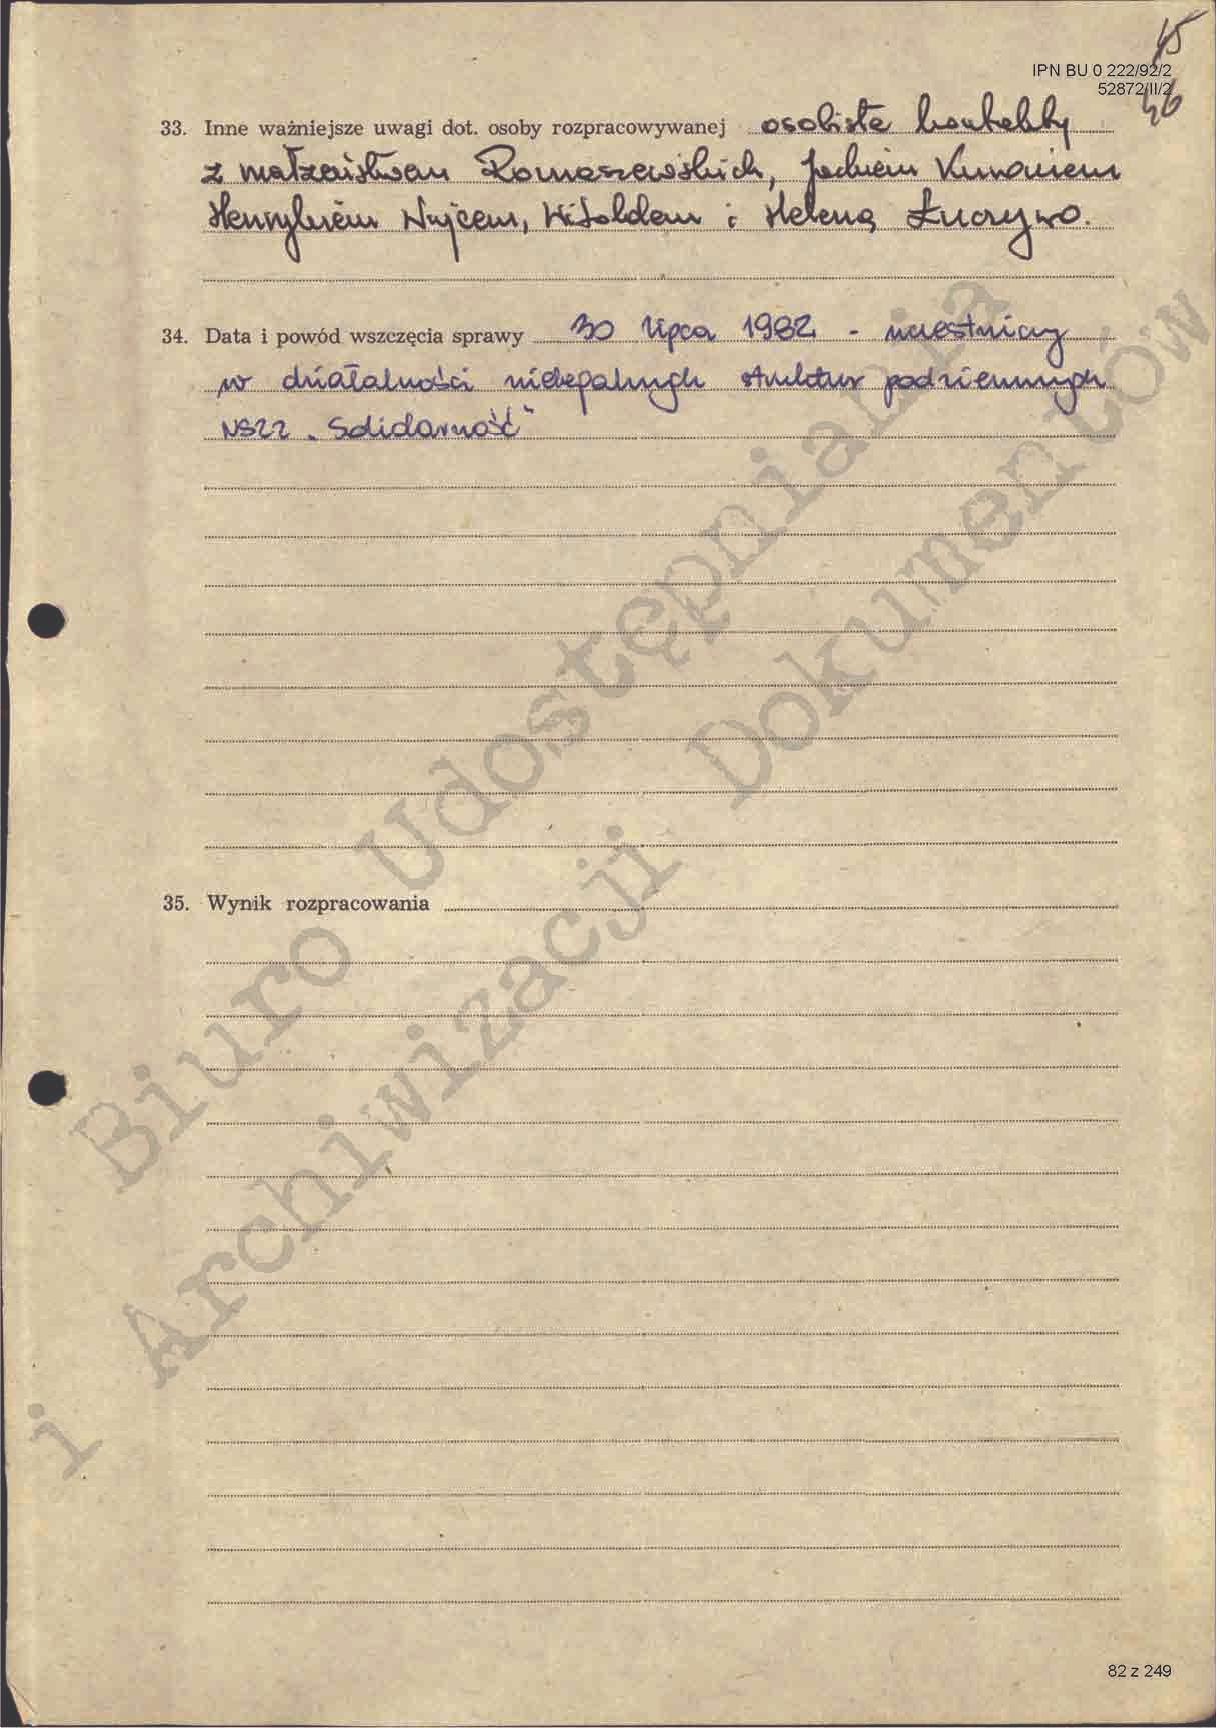 45
IPN BU 0 222/92/2
52872/II/2
46
33. Inne ważniejsze uwagi dot. osoby rozpracowywanej osobiste kontakty
z małżeństwem Romaszewskich, Jackiem Kuroniem
Henrykiem Wujcem, Witoldem i Heleną Łuczywo.
34. Data i powód wszczęcia sprawy 30 lipca 1982 - uczestniczy
w działalności nielegalnych struktur podziemnych
NSZZ „Solidarność"
35. Wynik rozpracowania
Biuro Udostępniania
i Archiwizacji Dokumentów
82 z 249